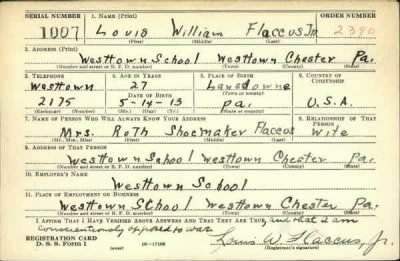 SERIAL NUMBER 1. NAME (Print) ORDER NUMBER
1007 Louis William Flaccus Jr. 2390
(First) (Middle) (Last)
2. ADDRESS (Print)
Westtown School Westtown Chester Pa.
(Number and street or R. F. D. number) (Town) (County) (State)
3. TELEPHONE 4. AGE IN YEARS 5. PLACE OF BIRTH 6. COUNTRY OF CITIZENSHIP
Westtown 27 Lansdowne
DATE OF BIRTH (Town or county)
2175 5-14-13 Pa. U.S.A.
(Exchange) (Number) (Mo.) (Day) (Yr.) (State or country)
7. NAME OF PERSON WHO WILL ALWAYS KNOW YOUR ADDRESS 8. RELATIONSHIP OF THAT PERSON
Mrs. Roth Shoemaker Flaccus Wife
(Mr., Mrs., Miss) (First) (Middle) (Last)
9. ADDRESS OF THAT PERSON
Westtown School Westtown Chester Pa.
(Number and street or R. F. D. number) (Town) (County) (State)
10. EMPLOYER'S NAME
Westtown School
11. PLACE OF EMPLOYMENT OR BUSINESS
Westtown School Westtown Chester Pa.
(Number and street or R. F. D. number) (Town) (County) (State)
I AFFIRM THAT I HAVE VERIFIED ABOVE ANSWERS AND THAT THEY ARE TRUE, and that I am
conscientiously opposed to war.
REGISTRATION CARD Louis W. Flaccus, Jr.
D. S. S. Form 1 16-17105 (Registrant's signature)